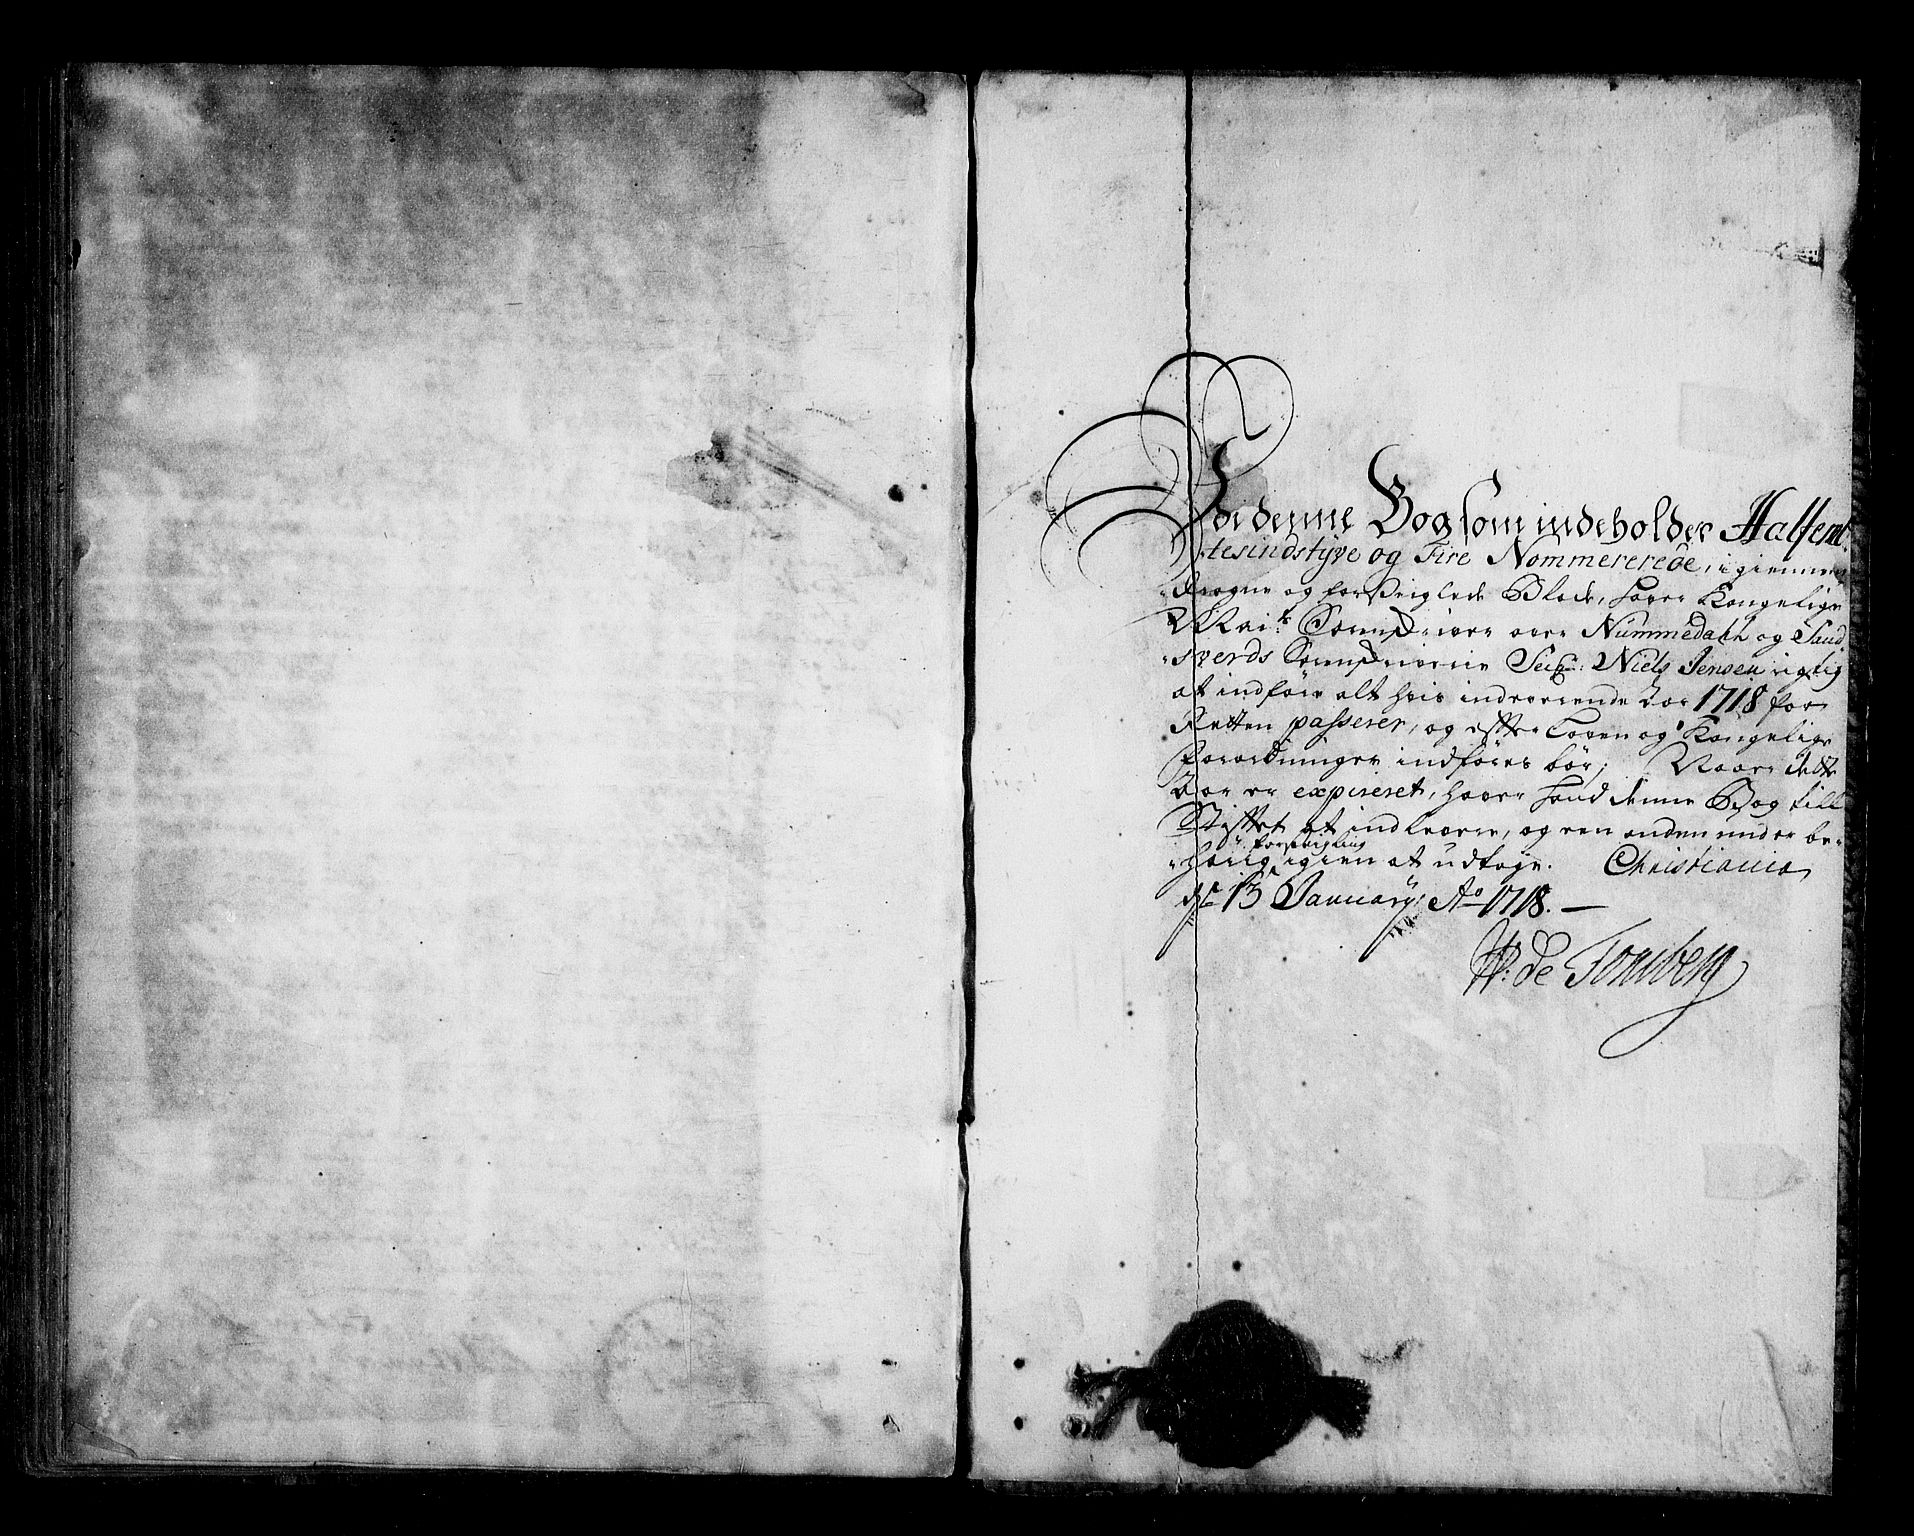 Udi denne Bog som indeholder Halfem-
tesindstÿve og Fire Nommererede, igiennem
dragne og forseiglede Blade, haver Kongelige
Mai:ts Sorenskriver over Nummedahl og Sand-
sverds Sorenskriverie Niels Jensen rigtig
at indføre alt hvis indeværende Aar 1718 for
Retten passerer, og effter Loven og Kongelige
Forordninger indføres bør; Naar dette
Aar er expireret, haver hand denne Bog till
Stifftet at indlevere, og een anden under be-
hørig forseigling igien at udtage. Christiania
d: 13 Januarÿ Ao 1718. —
W: de Tonsberg